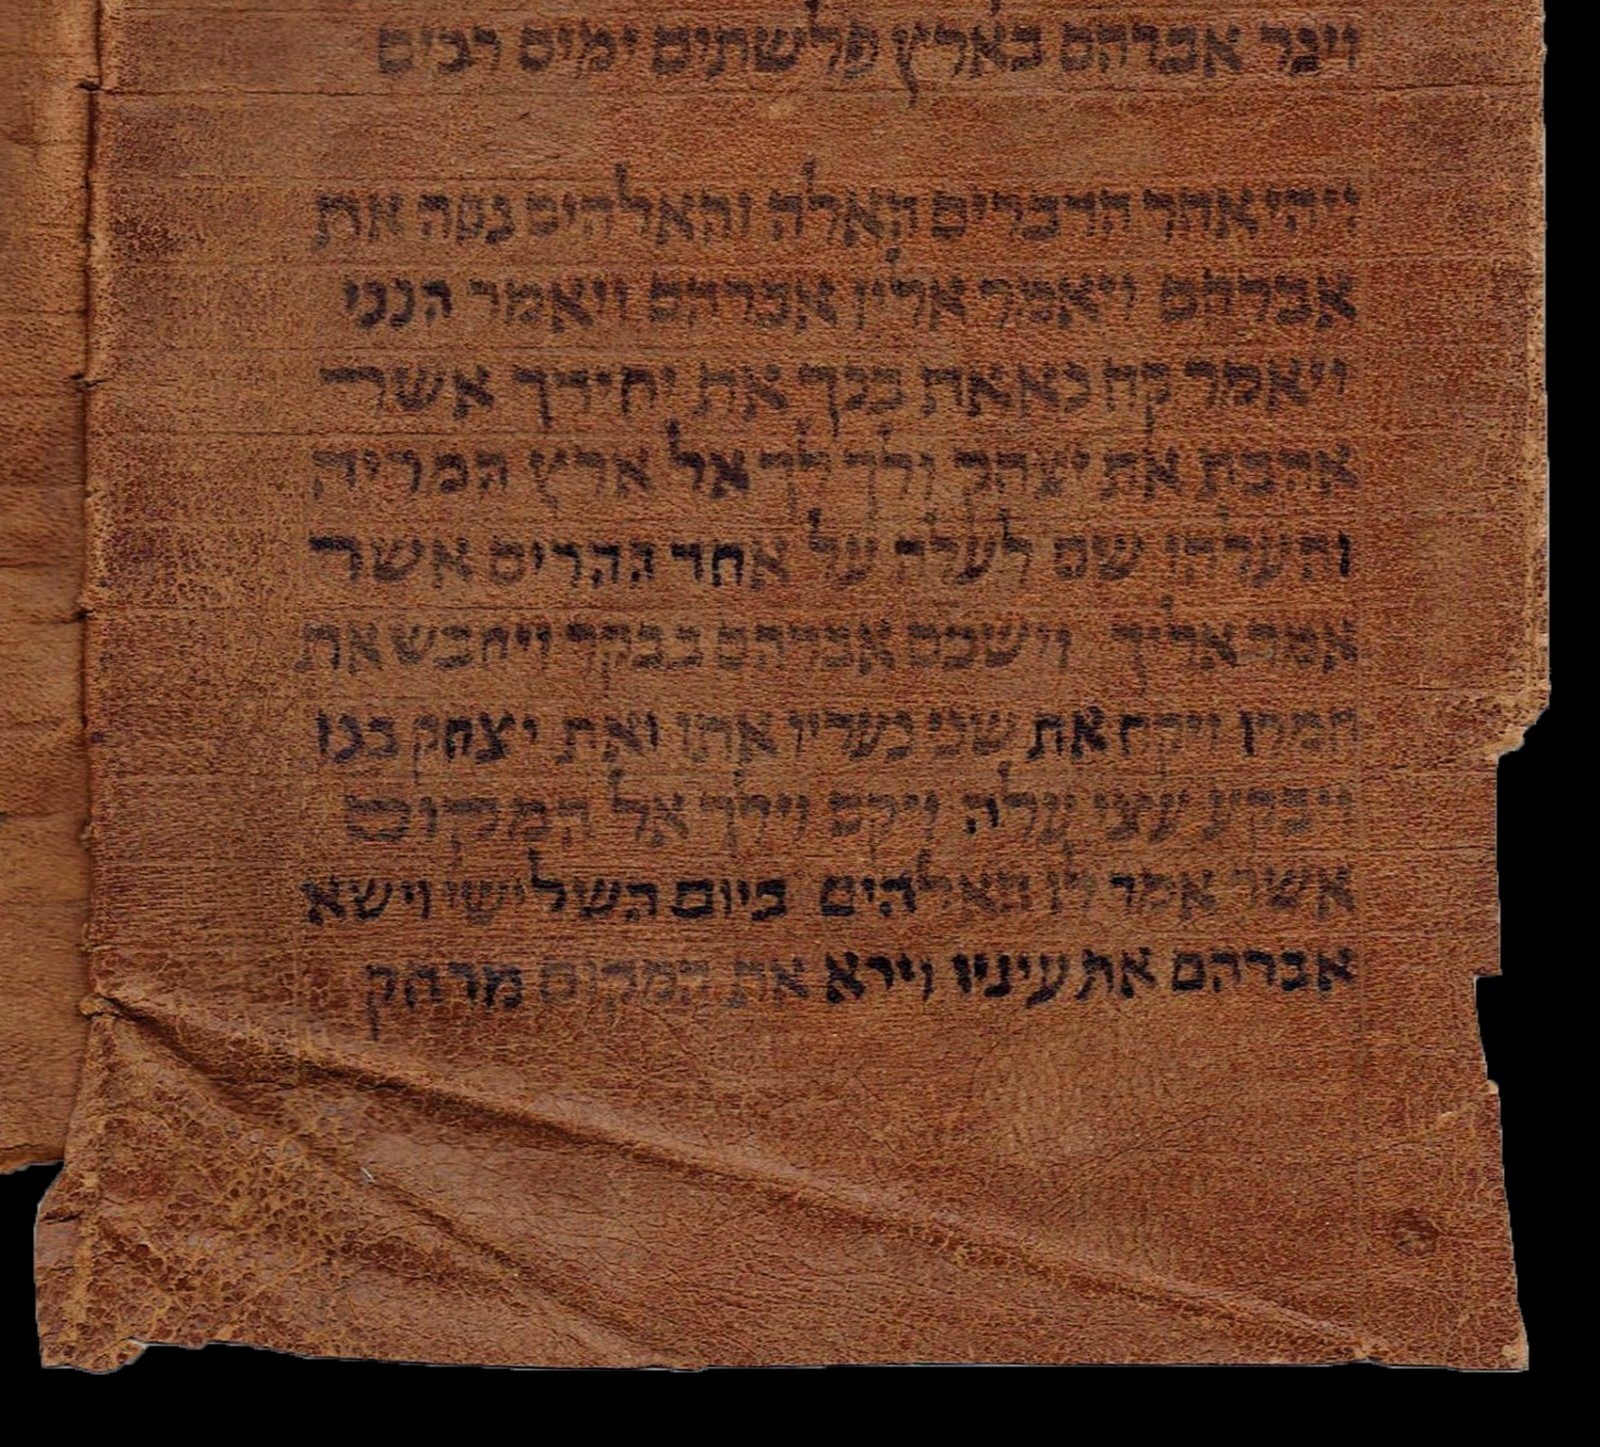 ויגר אברהם בארץ פלשתים ימים רבים
ויהי אחר הדברים האלה והאלהים נסה את
אברהם ויאמר אליו אברהם ויאמר הנני
ויאמר קח נא את בנך את יחידך אשר
אהבת את יצחק ולך לך אל ארץ המריה
והעלהו שם לעלה על אחד ההרים אשר
אמר אליך וישכם אברהם בבקר ויחבש את
חמרו ויקח את שני נעריו אתו ואת יצחק בנו
ויבקע עצי עלה ויקם וילך אל המקום
אשר אמר לו האלהים ביום השלישי וישא
אברהם את עיניו וירא את המקום מרחק